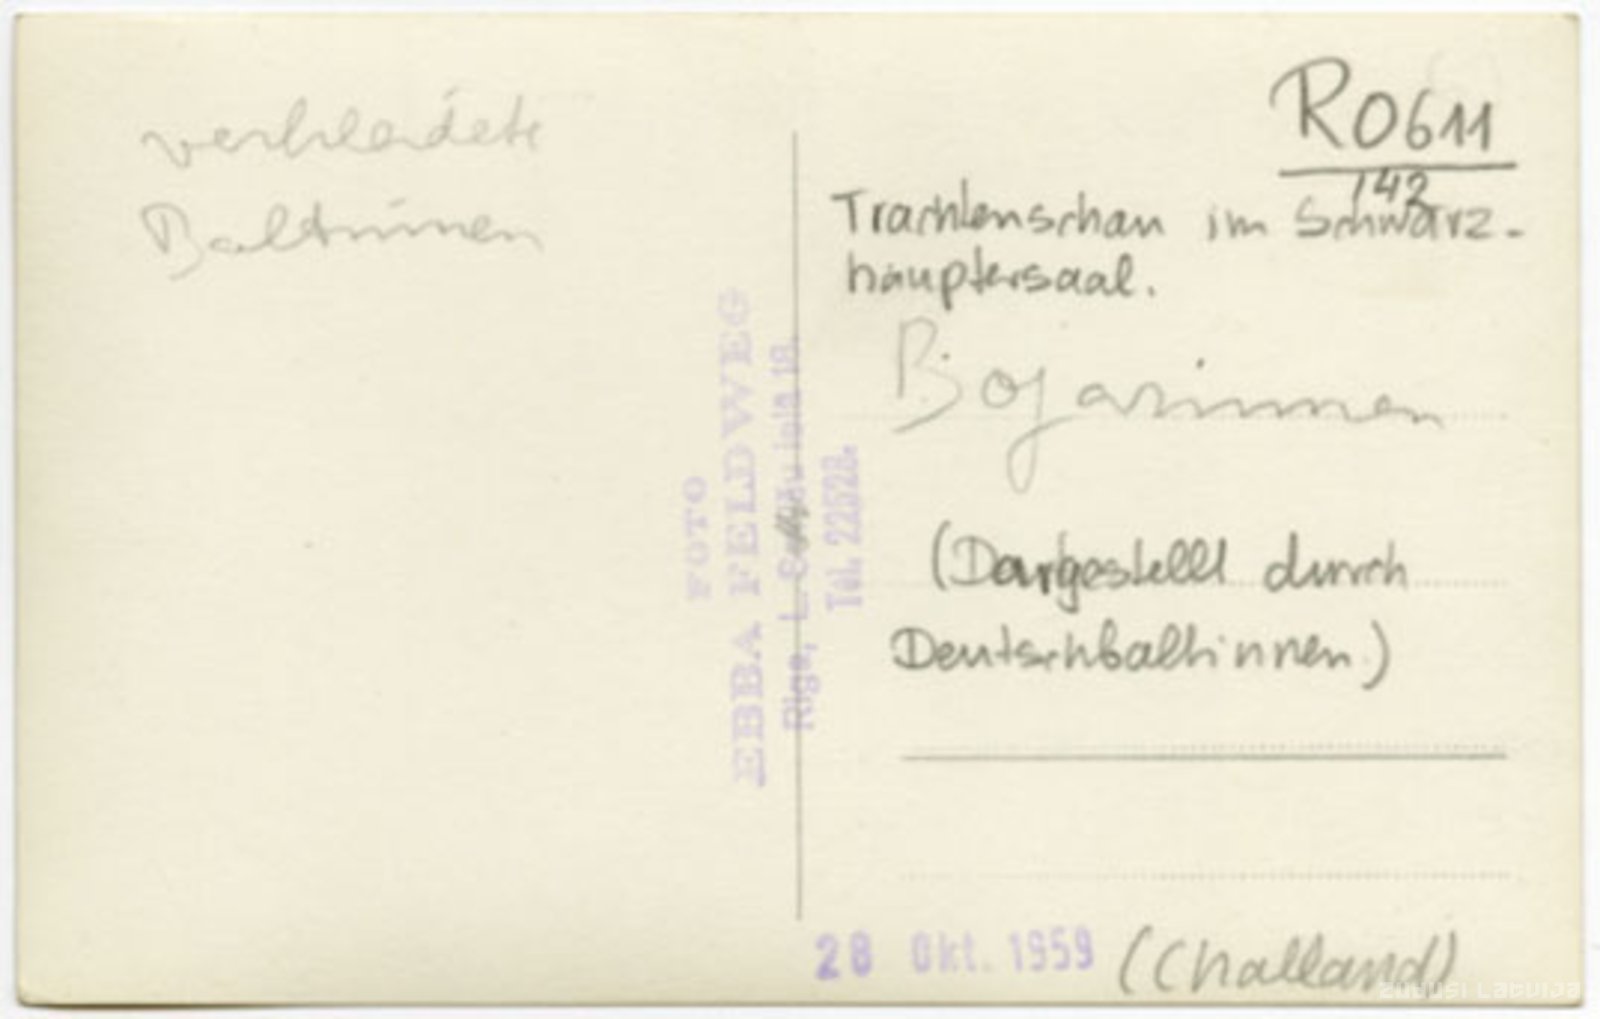 verkleidete
Baltinnen
R0611
142
Trachtenschau im Schwarz-
häuptersaal.
Bojarinnen
(Dargestellt durch
Deutschbaltinnen.)
FOTO
EBBA FELDWEG
Riga, L. iela 18.
Tel. 22528.
28 Okt. 1959
(Challand)
ZUDUSI LATVIJA